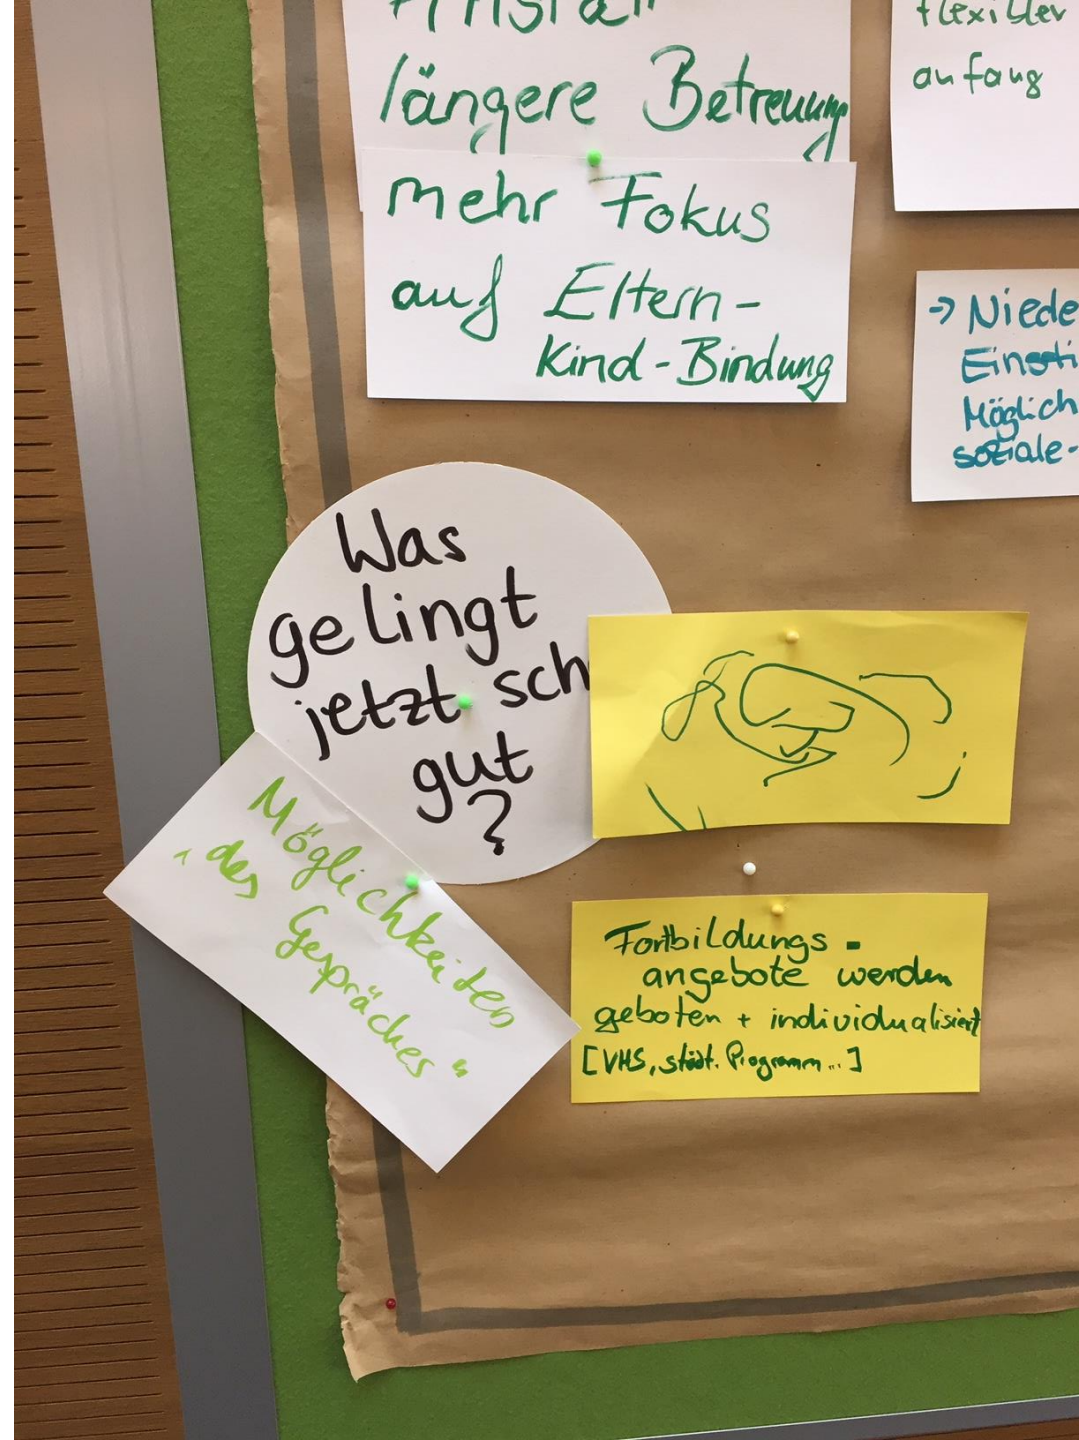 längere Betreuung
mehr Fokus
auf Eltern-
Kind-Bindung
flexibler
anfang
-> Niede
Einsti
Möglich
soziale-
Was
gelingt
jetzt sch
gut
?
Möglichkeiten
des
Gespräches"
Fortbildungs-
angebote werden
geboten + individualisiert
[VHS, städt. Programm...]